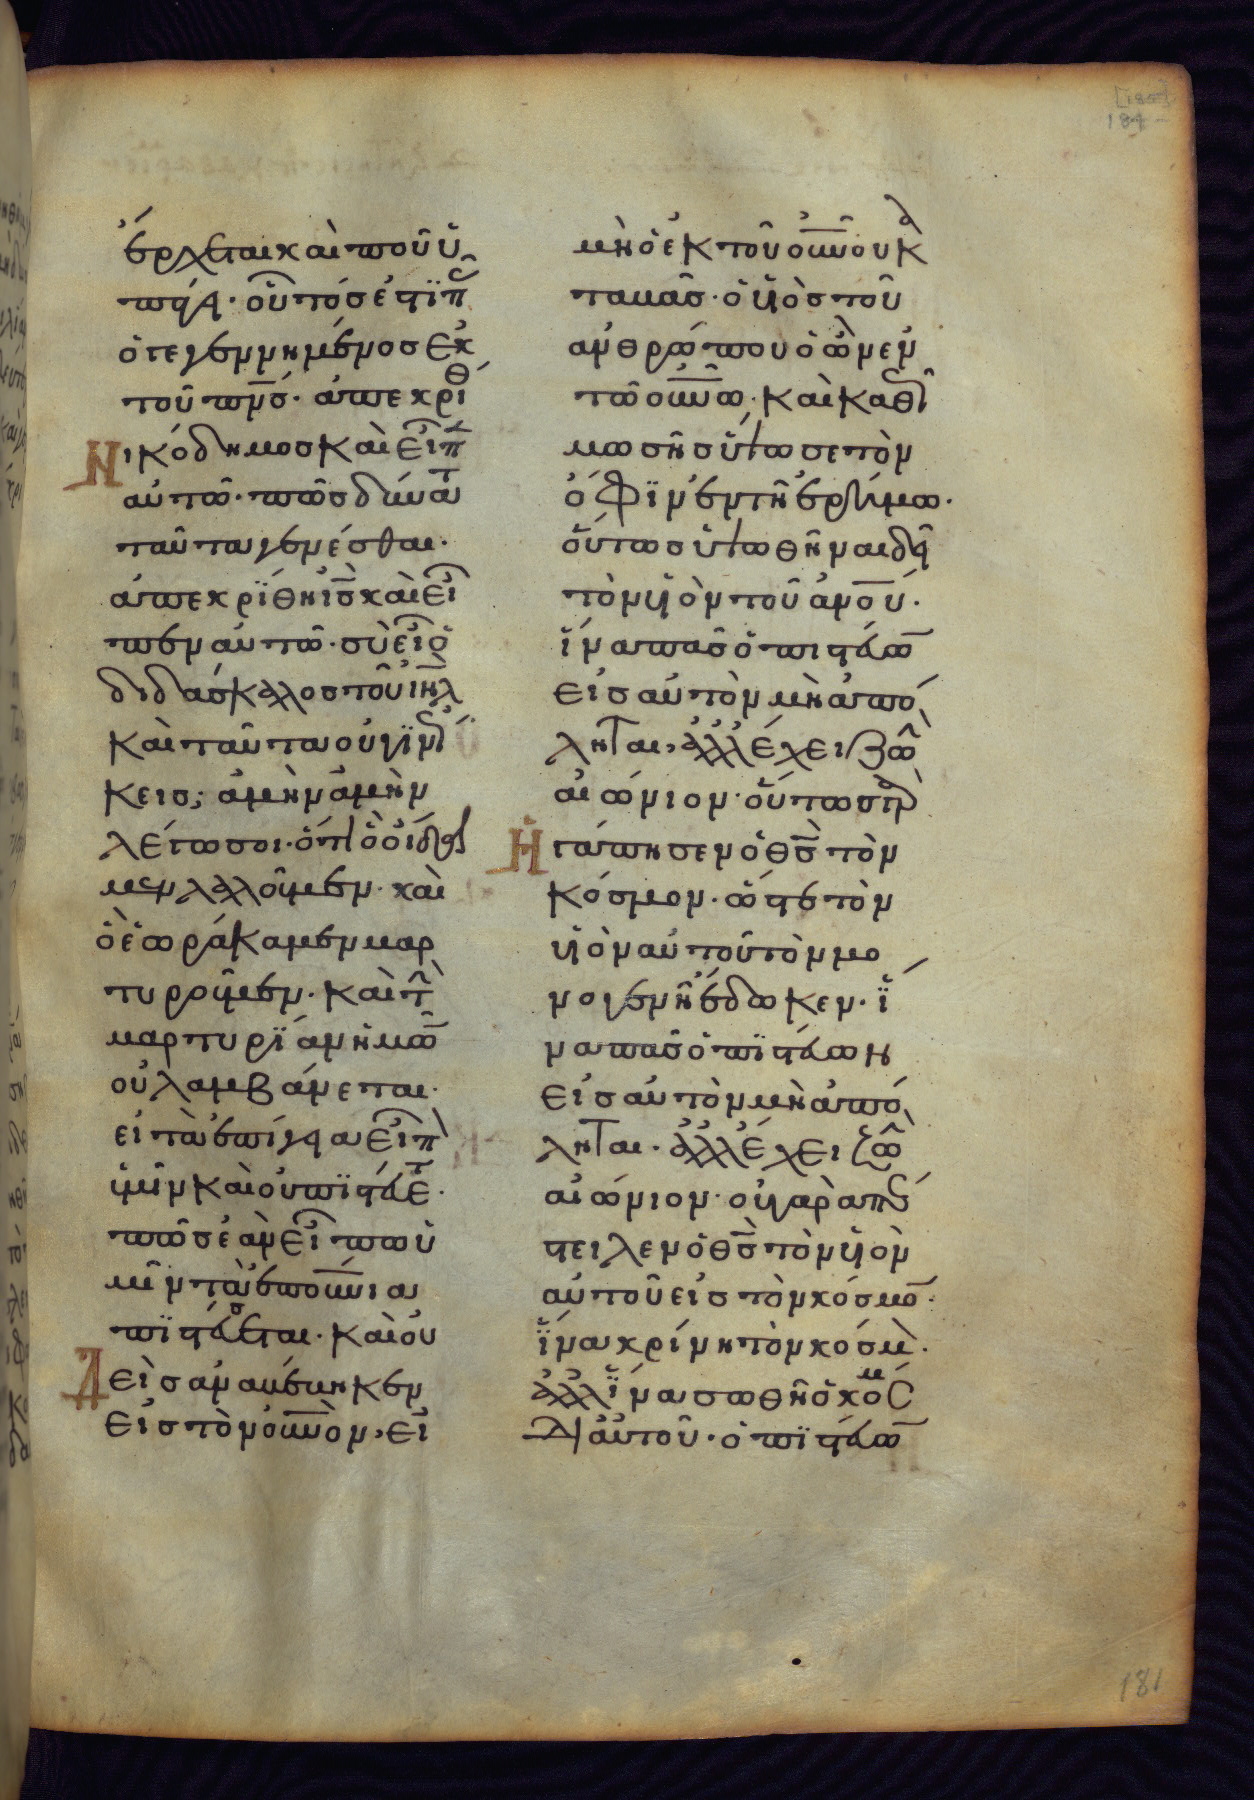 ἔρχεται καὶ ποῦ ὑ
πάγει· οὕτος ἐστὶ πᾶς
ὁ γεγεννημένος ἐκ
τοῦ πν̅ς· ἀπεκρίθ
Νικόδημος καὶ εἶπ
αὐτῶ· πῶς δύνατ
ταῦτα γενέσθαι·
ἀπεκρίθη ι̅ς̅ καὶ εἶ
πεν αὐτῶ· σὺ εἶ ὁ
διδάσκαλος τοῦ ι̅η̅λ̅
καὶ ταῦτα οὐ γινώσ
κεις; ἀμὴν ἀμὴν
λέγω σοι· ὅτι ὃ οἴδα
μεν λαλοῦμεν· καὶ
ὃ ἑωράκαμεν μαρ
τυροῦμεν· καὶ τὴν
μαρτυρίαν ἡμῶν
οὐ λαμβάνεται·
εἰ τὰ ἐπίγεια εἶπον
ὑμῖν καὶ οὐ πιστεύετ·
πῶς ἐὰν εἴπω ὑ
μῖν τὰ ἐπο̅υ̅νια
πιστεύσεται· καὶ οὐ
Δεὶς ἀναβέβηκεν
εἰς τὸν ο̅υ̅νὸν· εἰ
μὴ ὁ ἐκ τοῦ ο̅υ̅νου κα
ταβὰς· ὁ υἱὸς τοῦ
ἀνθρώπου ὁ ὢν ἐν
τῶ ο̅υ̅νῶ· καὶ καθὼς
μωσῆς ὕψωσε τὸν
ὄφιν ἐν τῆ ἐρήμω·
οὕτως ὑψωθῆναι δεῖ
τὸν υἱὸν τοῦ α̅ν̅ο̅υ̅·
ἵνα πᾶς ὁ πιστεύων
εἰς αὐτὸν μὴ ἀπό
ληται, ἀλλ' ἔχει ζωὴν
αἰώνιον· οὕτως γὰρ
Ἠγάπησεν ὁ θ̅ς̅ τὸν
κόσμον· ὥστε τὸν
υἱὸν αὐτοῦ τὸν μο
νογενῆ ἔδωκεν· ἵ
να πᾶς ὁ πιστεύων
εἰς αὐτὸν μὴ ἀπό
ληται· ἀλλ' ἔχει ζωὴν
αἰώνιον· οὐ γὰρ ἀπέ
στειλεν ὁ θ̅ς̅ τὸν υἱὸν
αὐτοῦ εἰς τὸν κόσμον·
ἵνα κρίνη τὸν κόσμον·
ἀλλ' ἵνα σωθῆ ὁ κόσμος
δι' αὐτοῦ· ὁ πιστεύων
181